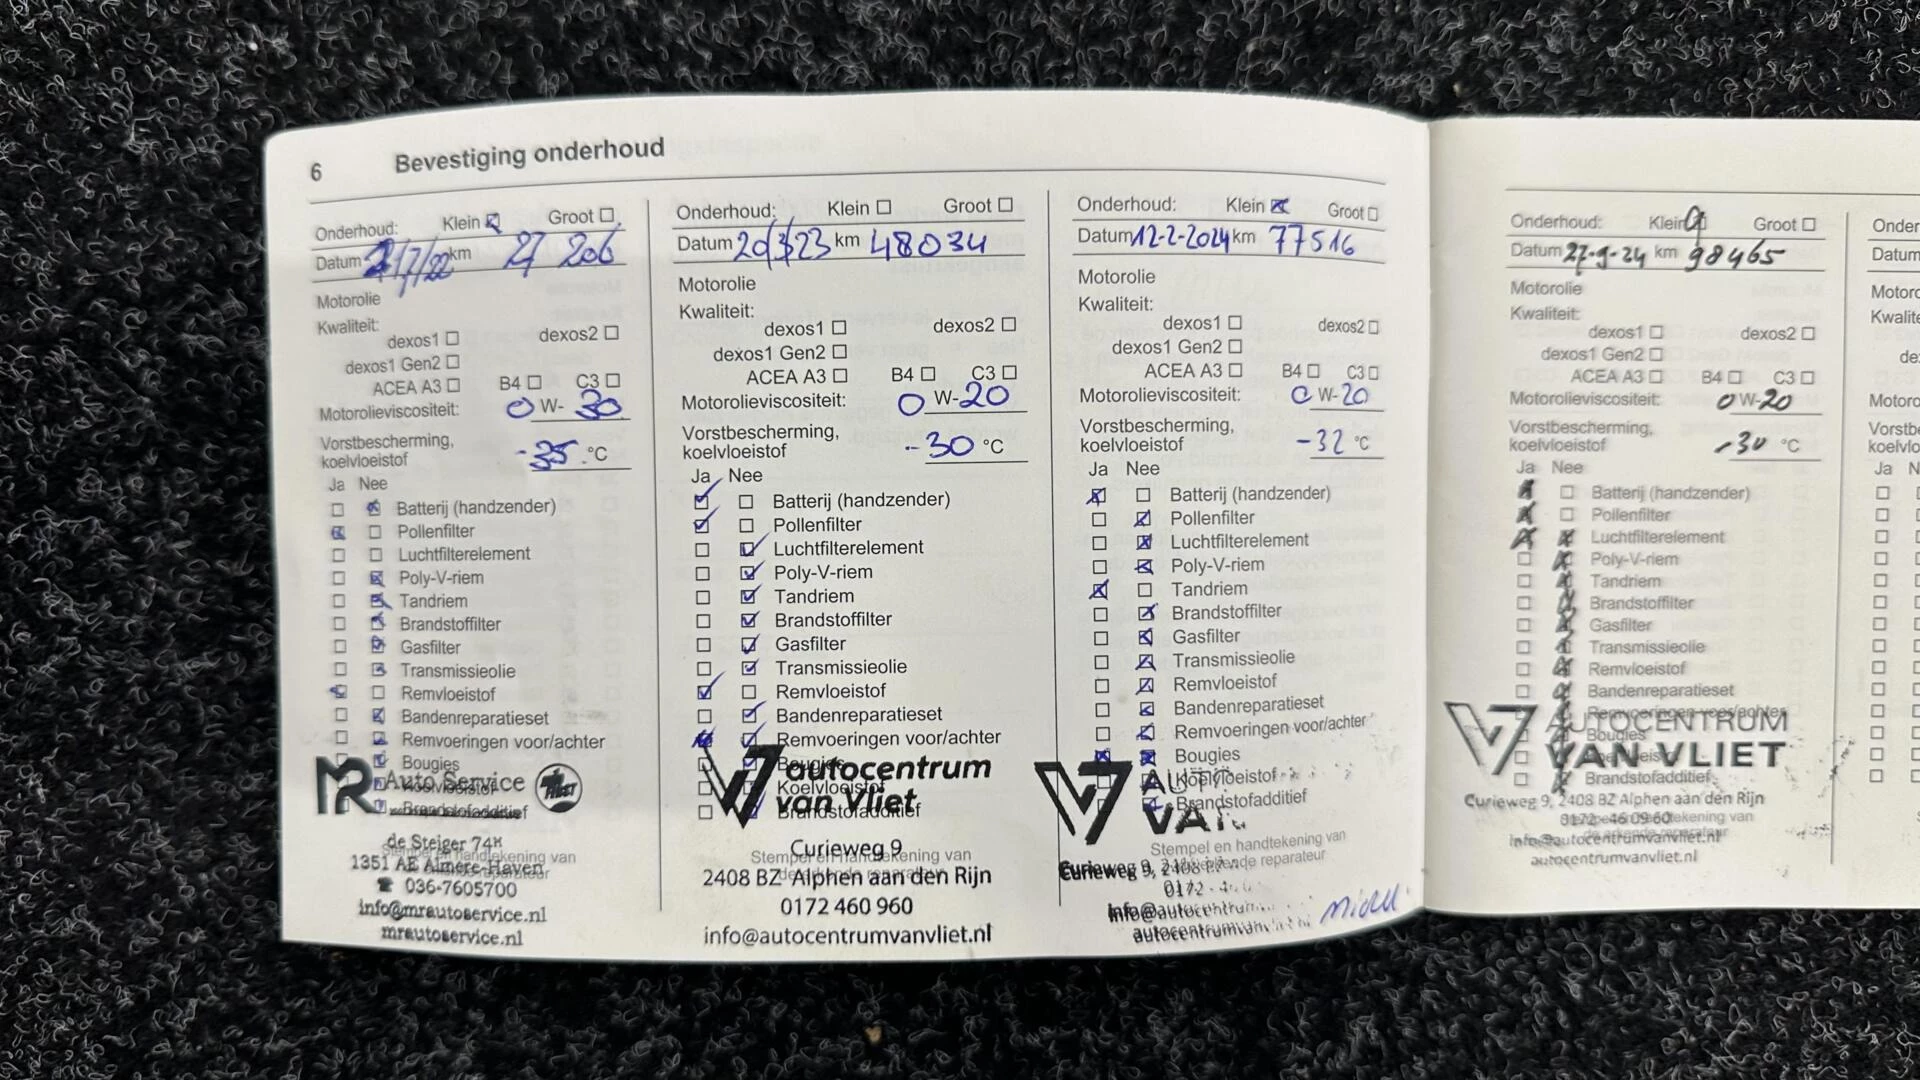 6 Bevestiging onderhoud
Onderhoud: Klein Groot
Datum /7/22 km 27 206
Motorolie
Kwaliteit:
dexos1 dexos2
dexos1 Gen2
ACEA A3 B4 C3
Motorolieviscositeit: 0 W- 30
Vorstbescherming,
koelvloeistof -35 °C
Ja Nee
Batterij (handzender)
Pollenfilter
Luchtfilterelement
Poly-V-riem
Tandriem
Brandstoffilter
Gasfilter
Transmissieolie
Remvloeistof
Bandenreparatieset
Remvoeringen voor/achter
Bougies
Koelvloeistof
Brandstofadditief
MR Auto Service
de Steiger 74
Stempel en handtekening van
1351 AE Almere-Haven
036-7605700
info@mrautoservice.nl
mrautoservice.nl
Onderhoud: Klein Groot
Datum 20/3/23 km 48034
Motorolie
Kwaliteit:
dexos1 dexos2
dexos1 Gen2
ACEA A3 B4 C3
Motorolieviscositeit: 0 W-20
Vorstbescherming,
koelvloeistof -30 °C
Ja Nee
Batterij (handzender)
Pollenfilter
Luchtfilterelement
Poly-V-riem
Tandriem
Brandstoffilter
Gasfilter
Transmissieolie
Remvloeistof
Bandenreparatieset
Remvoeringen voor/achter
Bougies
Koelvloeistof
Brandstofadditief
autocentrum
van Vliet
Curieweg 9
Stempel en handtekening van
2408 BZ Alphen aan den Rijn
0172 460 960
info@autocentrumvanvliet.nl
Onderhoud: Klein Groot
Datum 12-2-2024 km 77516
Motorolie
Kwaliteit:
dexos1 dexos2
dexos1 Gen2
ACEA A3 B4 C3
Motorolieviscositeit: 0 W-20
Vorstbescherming,
koelvloeistof -32 °C
Ja Nee
Batterij (handzender)
Pollenfilter
Luchtfilterelement
Poly-V-riem
Tandriem
Brandstoffilter
Gasfilter
Transmissieolie
Remvloeistof
Bandenreparatieset
Remvoeringen voor/achter
Bougies
Koelvloeistof
Brandstofadditief
Stempel en handtekening van
de erkende reparateur
Curieweg 9, 2408
0172
info@autocentrum
autocentrumvan
Onderhoud: Klein Groot
Datum 27-9-24 km 98465
Motorolie
Kwaliteit:
dexos1 dexos2
dexos1 Gen2
ACEA A3 B4 C3
Motorolieviscositeit: 0 W-20
Vorstbescherming,
koelvloeistof -30 °C
Ja Nee
Batterij (handzender)
Pollenfilter
Luchtfilterelement
Poly-V-riem
Tandriem
Brandstoffilter
Gasfilter
Transmissieolie
Remvloeistof
Bandenreparatieset
Remvoeringen voor/achter
Bougies
Koelvloeistof
Brandstofadditief
AUTOCENTRUM
VAN VLIET
Curieweg 9, 2408 BZ Alphen aan den Rijn
0172 - 46 09 60
info@autocentrumvanvliet.nl
autocentrumvanvliet.nl
Onder
Datum
Motoro
Kwalite
de
Motoro
Vorstbe
koelvlo
Ja N